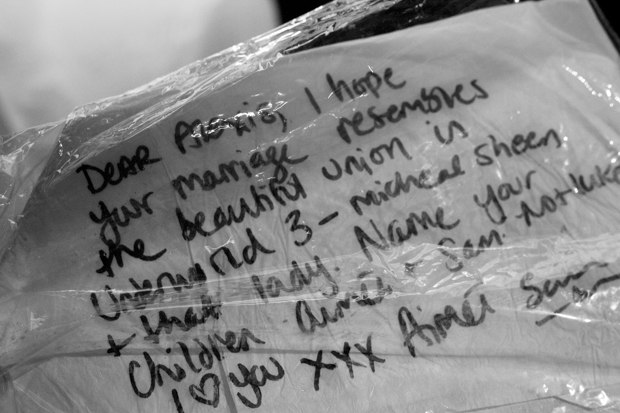 DEAR I hope
your marriage resembles
the beautiful union in
Underworld 3 - micheal sheen
+ that lady. Name your
Children aimei + Sam. Not luke
I ♡ you xxx Aimei Sam